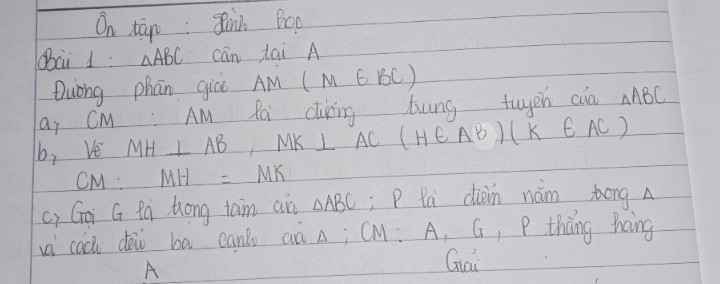 Ôn tập : Hình học
Bài 1 : △ABC cân tại A
Đường phân giác AM ( M ∈ BC )
a, CM : AM là đường trung tuyến của △ABC
b, Vẽ MH ⊥ AB , MK ⊥ AC ( H ∈ AB ) ( K ∈ AC )
CM : MH = MK
c, Gọi G là trọng tâm của △ABC ; P là điểm nằm trong △
và cách đều ba cạnh của △ ; CM : A, G, P thẳng hàng
A Giải